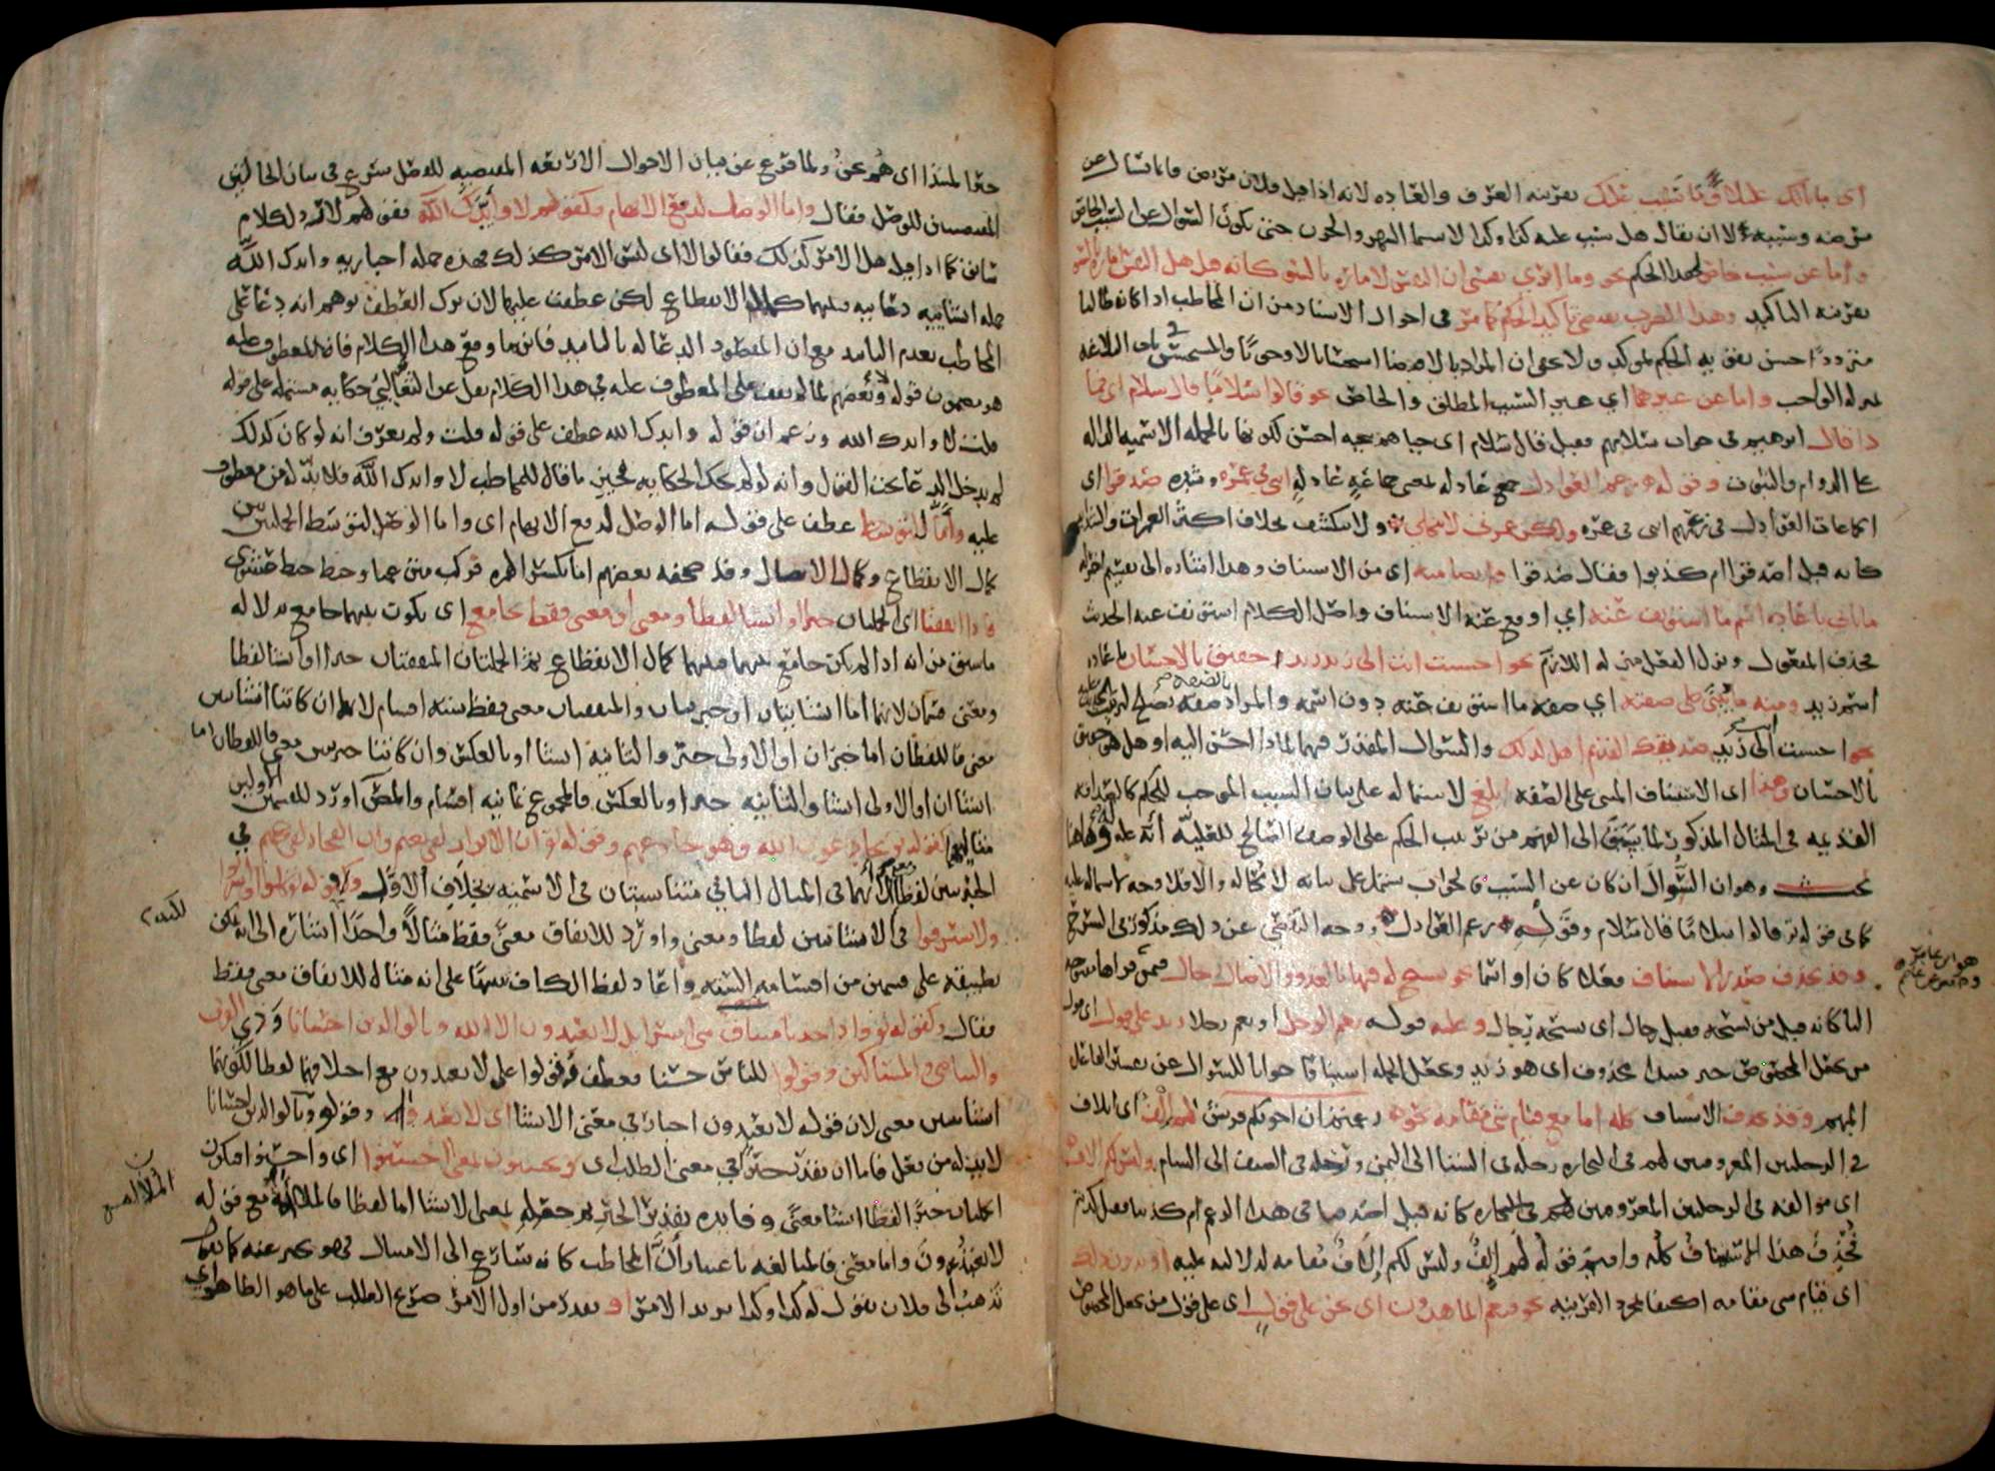 اى ما بالك عليلا او ما سبب علتك بقرينة العرف والعادة لانه اذا قيل فلان مريض فانما يسال عن
مرضه وسببه لا ان يقال هل سبب علته كذا وكذا لا سيما السهر والحزن حتى يكون السوال عن السبب الخاص
واما عن سبب خاص لهذا الحكم نحو وما ابرى نفسى ان النفس لامارة بالسو كانه قيل هل النفس امارة بالسو
بقرينة التاكيد وهذا الضرب يقتضى تاكيد الحكم كما مر فى احوال الاسناد من ان المخاطب اذا كان طالبا
مترددا حسن تقويه الحكم بموكد ولا يخفى ان المراد بالاقتضا استحسانا لا وجوبا والمستحسن فى باب البلاغة
بمنزلة الواجب واما عن غيرهما اى غير السبب المطلق والخاص نحو قالوا سلاما قال سلام اى فما
ذا قال ابرهيم فى جواب سلامهم فقيل قال سلام اى حياهم بتحية احسن لكونها بالجملة الاسمية الدالة
على الدوام والثبوت وقوله زعم العواذل جمع عاذلة بمعنى جماعة عاذلة اننى فى غمرة وشدة صدقوا اى
الجماعات العواذل فى زعمهم اننى فى غمرة ولكن غمرتى لا تنجلى ولا تنكشف بخلاف اكثر الغمرات والشدايد
كانه قيل اصدقوا ام كذبوا فقال صدقوا وايضا منه اى من الاستيناف وهذا اشارة الى تقسيم اخر له
ما ياتى باعادة اسم ما استونف عنه اى اوقع عنه الاستيناف واصل الكلام استونف عنه الحديث
فحذف المفعول ونزل الفعل منزلة اللازم نحو احسنت انت الى زيد زيد حقيق بالاحسان باعادة
اسم زيد ومنه ما يبنى على صفته اى صفة ما استونف عنه دون اسمه والمراد صفة تصلح لترتب الحديث عليه
نحو احسنت الى زيد صديقك القديم اهل لذلك والسوال المقدر فيهما لماذا احسن اليه او هل هو حقيق
بالاحسان وهذا اى الاستيناف المبنى على الصفة ابلغ لاشتماله على بيان السبب الموجب للحكم كالصداقة
القديمة فى المثال المذكور لما يسبق الى الفهم من ترتب الحكم على الوصف الصالح للعلية انه علة له وهاهنا
بحث وهو ان السوال ان كان عن السبب فالجواب يشتمل على بيانه لا محالة والا فلا وجه لاشتماله عليه
كما فى قوله تع قالوا سلاما قال سلام وقوله زعم العواذل ووجه التفصى عن ذلك مذكور فى الشرح
وقد يحذف صدر الاستيناف فعلا كان او اسما نحو يسبح له فيها بالغدو والاصال رجال فمن قراها مفتوحة
البا كانه قيل من يسبحه فقيل رجال اى يسبحه رجال وعليه قوله نعم الرجل او نعم رجلا زيد على قول اى قول
من يجعل المخصوص خبر مبتدا محذوف اى هو زيد ويجعل الجملة استينافا جوابا للسوال عن تفسير الفاعل
المبهم وقد يحذف الاستيناف كله اما مع قيام شى مقامه نحو زعمتم ان اخوتكم قريش لهم الف اى ايلاف
فى الرحلتين المعروفتين لهم فى التجارة رحلة فى الشتا الى اليمن ورحلة فى الصيف الى الشام وليس لكم الاف
اى موالفة فى الرحلتين المعروفتين لهم فى التجارة كانه قيل اصدقنا فى هذا الزعم ام كذبنا فقيل كذبتم
فحذف هذا الاستيناف كله واقيم قوله لهم الف وليس لكم الاف مقامه لدلالته عليه او بدون ذلك
اى قيام شى مقامه اكتفا بمجرد القرينة نحو فنعم الماهدون اى نحن على قول اى على قول من يجعل المخصوص
خبر المبتدا اى هم نحن ولما فرغ عن بيان الاحوال الاربعة المقتضية للفصل شرع فى بيان الحالتين
المقتضيتين للوصل فقال واما الوصل لدفع الايهام فكقولهم لا وايدك الله فقولهم لا رد لكلام
سابق كما اذا قيل هل الامر كذلك فقالوا لا اى ليس الامر كذلك فهذه جملة اخبارية وايدك الله
جملة انشائية دعائية فبينهما كمال الانقطاع لكن عطفت عليها لان ترك العطف يوهم انه دعا على
المخاطب بعدم التاييد مع ان المقصود الدعا له بالتاييد فاينما وقع هذا الكلام فالمعطوف عليه
هو مضمون قوله لا وبعضهم لما لم يقف على المعطوف عليه فى هذا الكلام نقل عن الثعالبى حكاية مشتملة على قوله
قلت لا وايدك الله وزعم ان قوله وايدك الله عطف على قوله قلت ولم يعرف انه لو كان كذلك
لم يدخل الدعا تحت القول وانه لو لم يحك الحكاية فحين ما قال للمخاطب لا وايدك الله فلا بد له من معطوف
عليه واما للتوسط عطف على قوله اما الوصل لدفع الايهام اى واما الوصل لتوسط الجملتين بين
كمال الانقطاع وكمال الاتصال وقد صحفه بعضهم اما بكسر الهمزة فركب متن عميا وخبط خبط عشوى
فاذا اتفقتا اى الجملتان خبرا او انشا لفظا ومعنى او معنى فقط بجامع اى بكون بينهما جامع بدلالة
ما سبق من انه اذا لم يكن جامع بينهما فبينهما كمال الانقطاع ثم الجملتان المتفقتان خبرا او انشا لفظا
ومعنى قسمان لانهما اما انشائيتان او خبريتان والمتفقتان معنى فقط ستة اقسام لانهما ان كانتا انشائيتين
معنى فاللفظان اما خبران او الاولى خبر والثانية انشا او بالعكس وان كانتا خبريتين معنى فاللفظان اما
انشاان او الاولى انشا والثانية خبر او بالعكس فالمجموع ثمانية اقسام والمص اورد للقسمين الاولين
مثاليهما كقوله تع يخادعون الله وهو خادعهم وقوله تع ان الابرار لفى نعيم وان الفجار لفى جحيم فى
الخبريتين لفظا ومعنى الا انهما فى المثال الثانى متناسبتان فى الاسمية بخلاف الاول وقوله تع كلوا واشربوا
ولا تسرفوا فى الانشائيتين لفظا ومعنى واورد للاتفاق معنى فقط مثالا واحدا اشارة الى انه يمكن
تطبيقه على قسمين من اقسامه الستة واعاد لفظ الكاف تنبيها على انه مثال للاتفاق معنى فقط
فقال وكقوله تع واذ اخذنا ميثاق بنى اسرايل لا تعبدون الا الله وبالوالدين احسانا وذى القربى
واليتامى والمساكين وقولوا للناس حسنا فعطف قولوا على لا تعبدون مع اختلافهما لفظا لكونهما
انشائيتين معنى لان قوله لا تعبدون اخبار فى معنى الانشا اى لا تعبدوا وقوله وبالوالدين احسانا
لا بد له من فعل فاما ان يقدر خبرا فى معنى الطلب اى وتحسنون بمعنى احسنوا اى واحسنوا فتكون
الجملتان خبرا لفظا انشا معنى وفايدة تقدير الخبر ثم جعله بمعنى الانشا اما لفظا فالملايمة مع قوله
لا تعبدون واما معنى فالمبالغة باعتبار ان المخاطب كانه سارع الى الامتثال فهو يخبر عنه كما تقول
تذهب الى فلان تقول له كذا وكذا تريد الامر او يقدر من اول الامر صريح الطلب على ما هو الظاهر اى